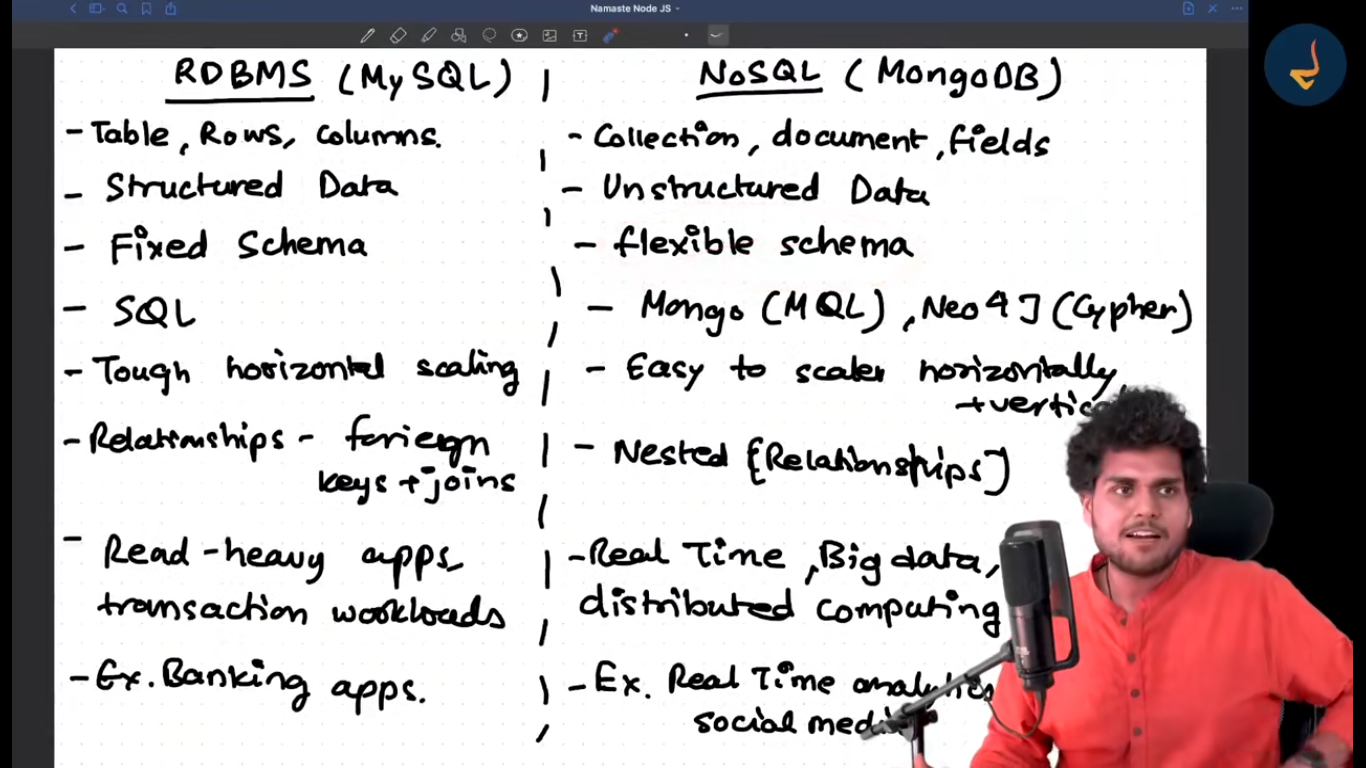 Namaste Node JS
RDBMS (MySQL)
- Table, Rows, Columns.
- Structured Data
- Fixed Schema
- SQL
- Tough horizontal scaling
- Relationships - foriegn
keys + joins
- Read-heavy apps,
transaction workloads
- Ex. Banking apps.
NoSQL (MongoDB)
- Collection, document, fields
- Unstructured Data
- flexible schema
- Mongo (MQL), Neo4J (Cypher)
- Easy to scale horizontally
+
- Nested [Relationships]
- Real Time, Big data,
distributed computing
- Ex. Real Time analytics
social media